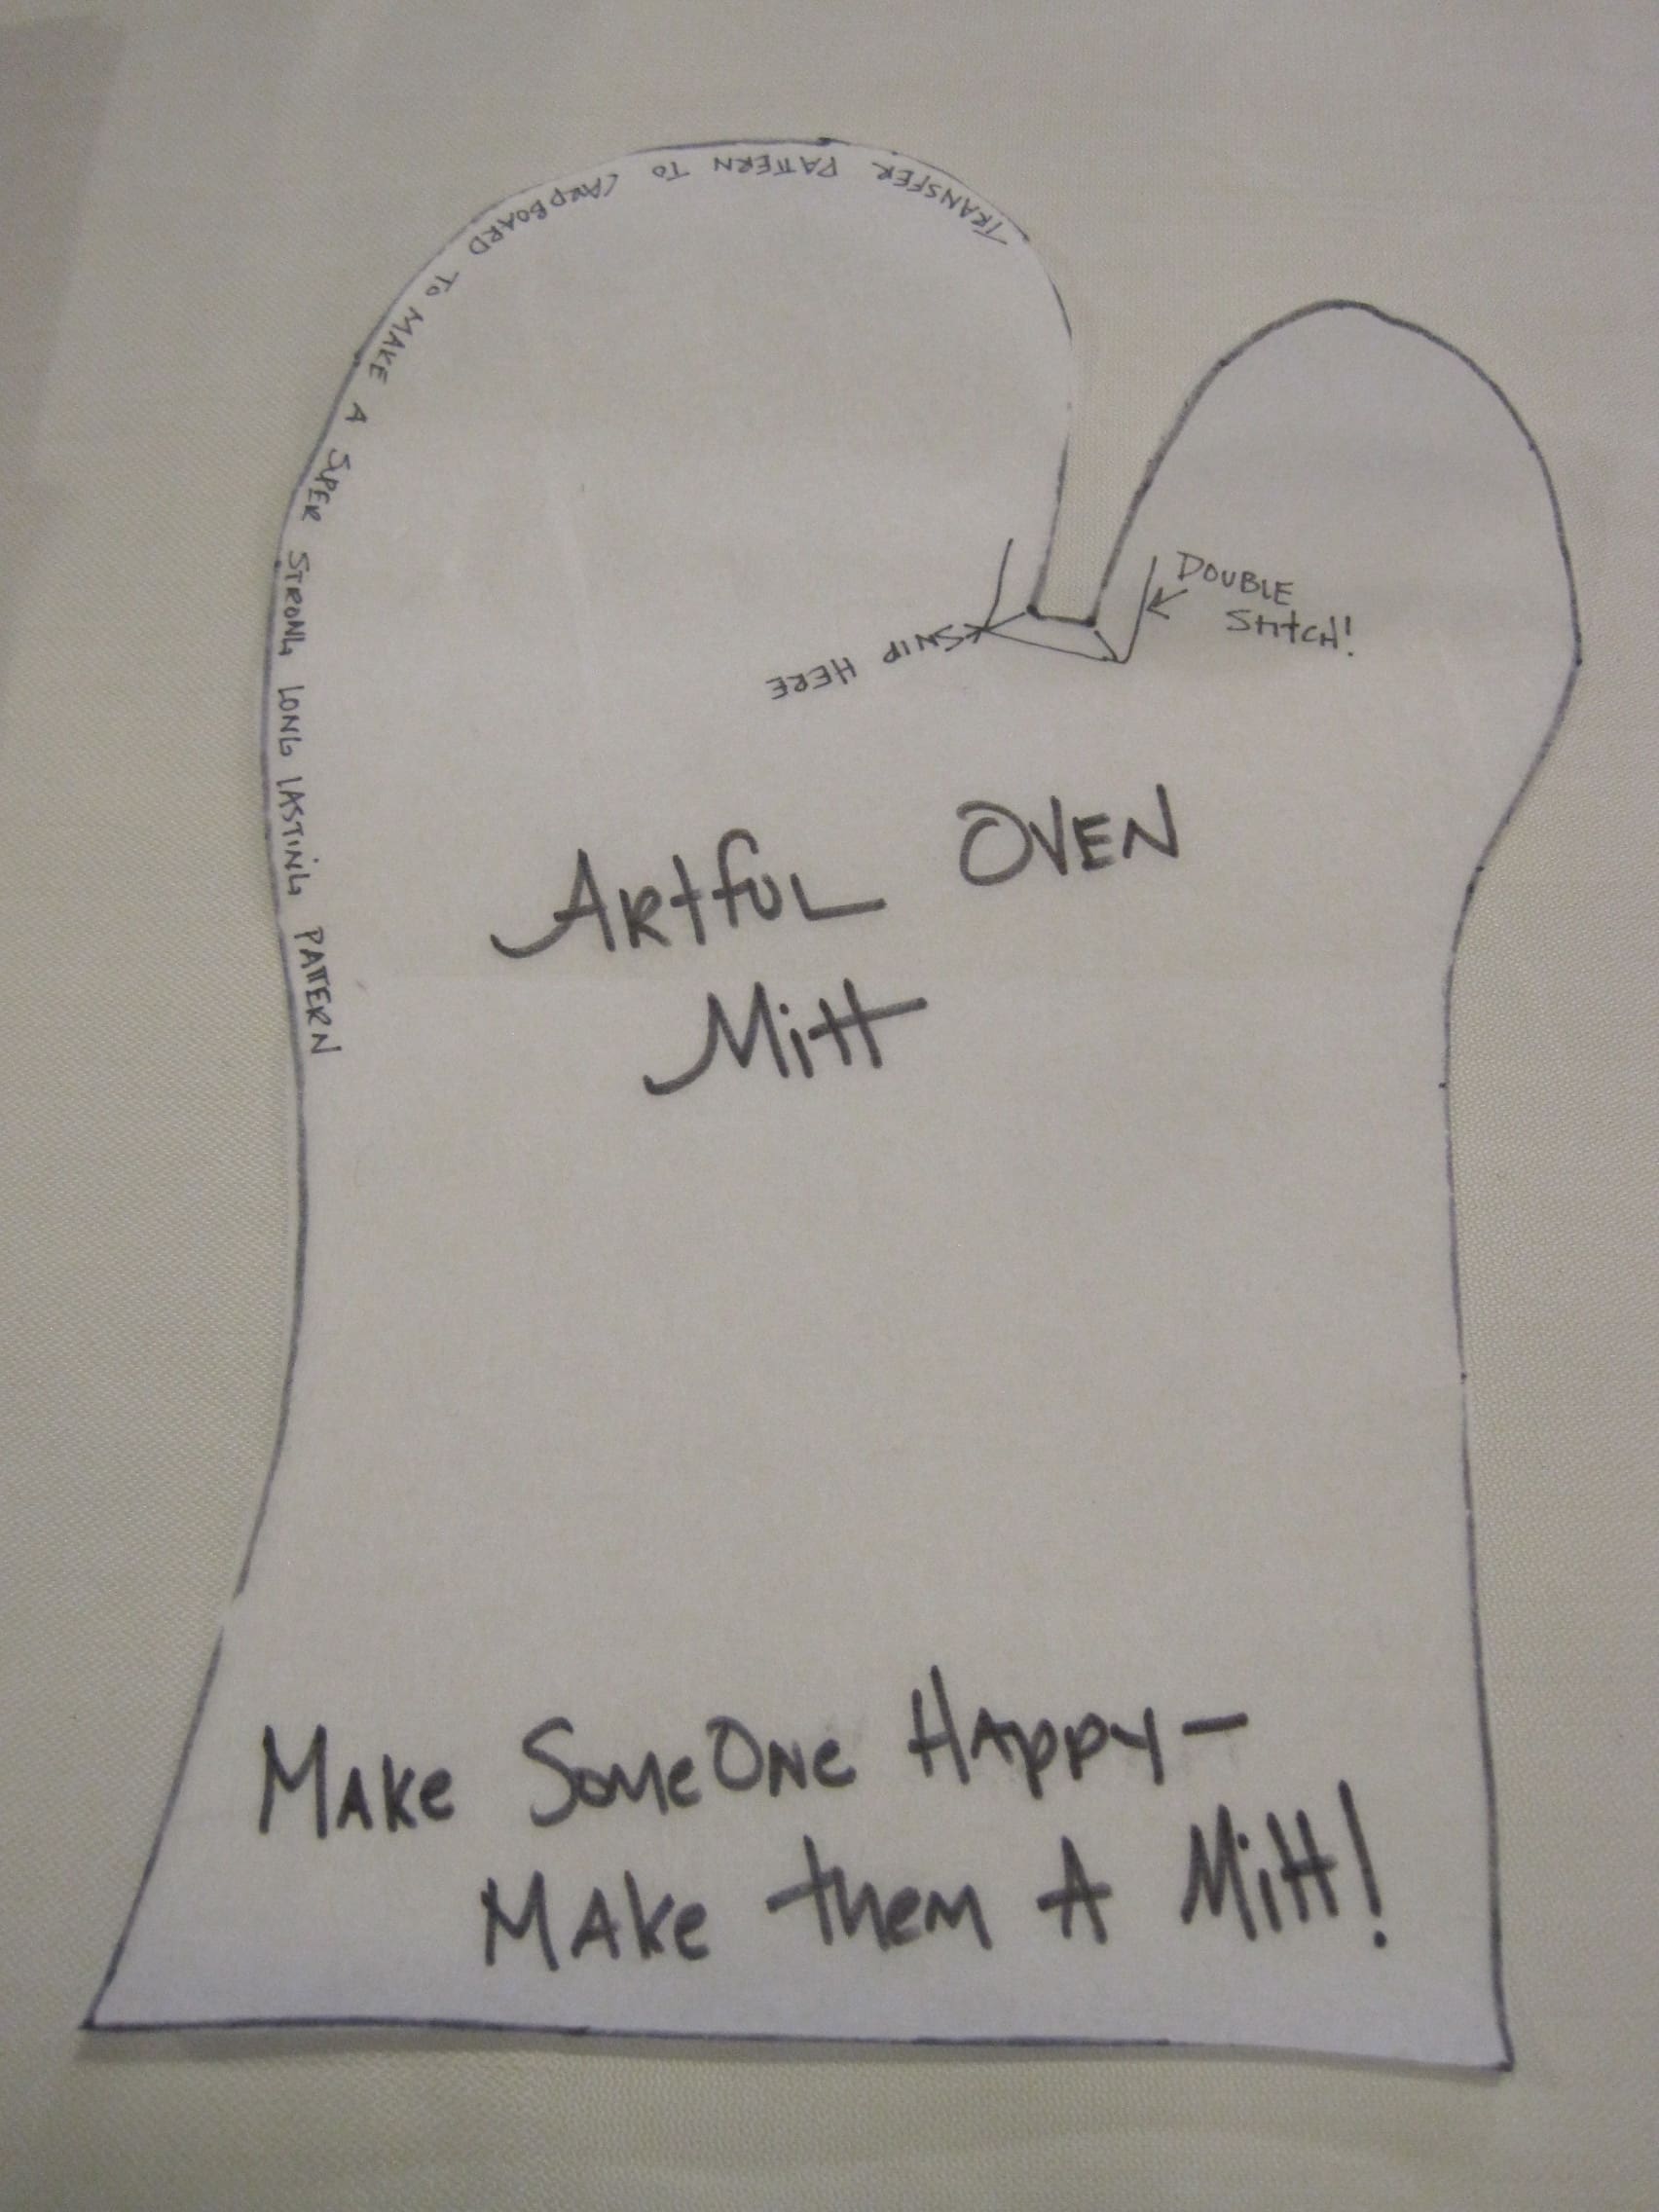 TRANSFER PATTERN TO CARDBOARD TO MAKE A SPER STRONG LONG LASTING PATTERN
DOUBLE
StitCH!
SNIP HERE
ARtfuL OVEN
Mitt
MAKe SomeONe HAppy-
MAKe them A Mitt!